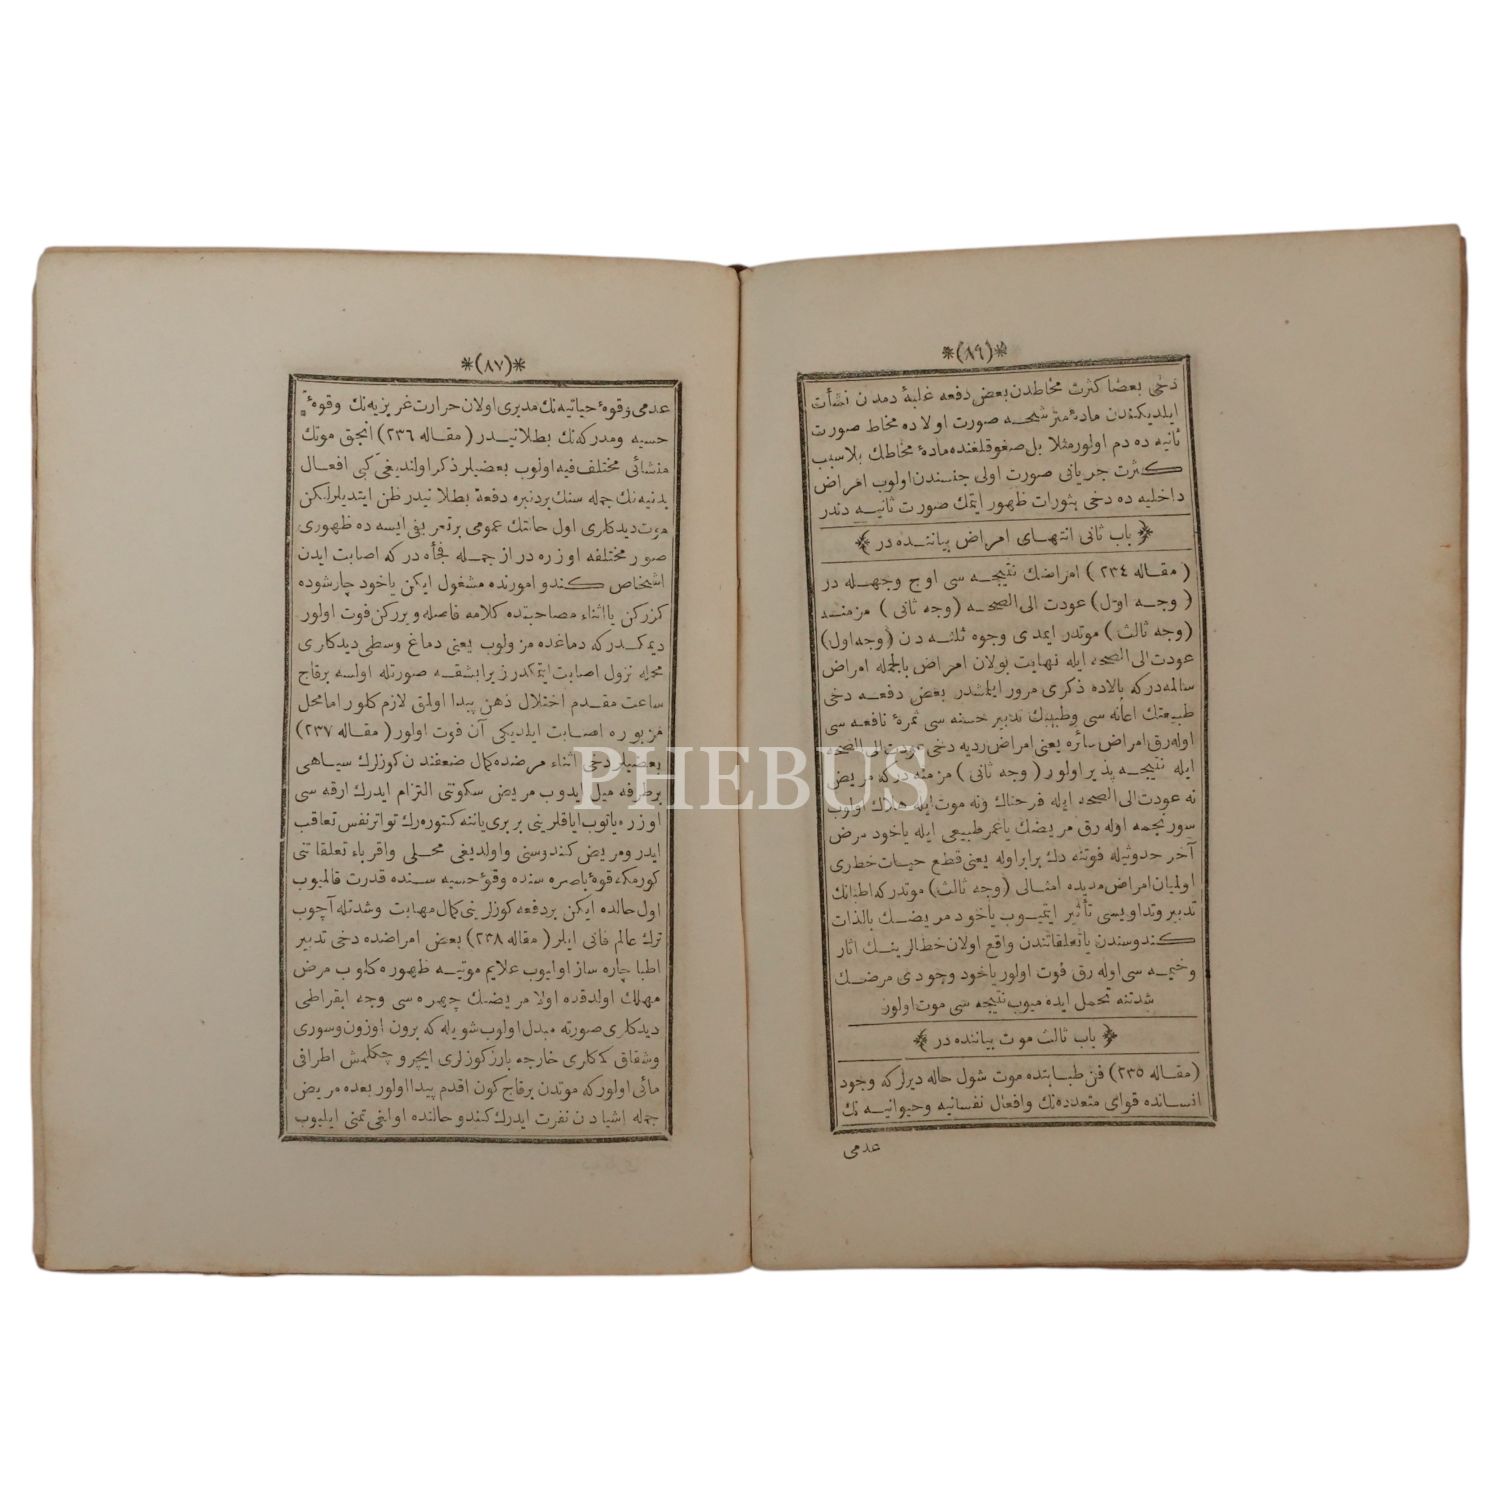 *(٨٩)*
دخی بعضا كثرت مخاطدن بعض دفعه غلبهٔ دمدن نشأت
ایلدیكندن مادهٔ مترشحه صورت اولاده مخاط صورت
ثانیه ده دم اولور مثلا بل صغوقلغنده مادهٔ مخاطك بلاسبب
كثرت جریانی صورت اولی جنسندن اولوب امراض
داخلیه ده دخی بثورات ظهور ایتمك صورت ثانیه دندر
﴿ باب ثانی انتهای امراض بیاننده در ﴾
( مقاله ٢٣٤ ) امراضك نتیجه سی اوج وجهله در
( وجه اول ) عودت الی الصحه ( وجه ثانی ) مزمنه
( وجه ثالث ) موتدر ایمدی وجوه ثلثه دن ( وجه اول )
عودت الی الصحه ایله نهایت بولان امراض بالجمله امراض
سالمه در كه بالاده ذكری مرور ایلمشدر بعض دفعه دخی
طبیعتك اعانه سی وطبیبك تدبیر حسنه سی ثمرهٔ نافعه سی
اوله رق امراض سائره یعنی امراض ردیه دخی عودت الی الصحه
ایله نتیجه پذیر اولور ( وجه ثانی ) مزمنه در كه مریض
نه عودت الی الصحه ایله فرحناك ونه موت ایله هلاك اولوب
سورنجمه اوله رق مریضك یا عمر طبیعی ایله یاخود مرض
آخر حدوثیله فوتنه دك برابر اوله یعنی قطع حیات خطری
اولمیان امراض مدیده امثالی ( وجه ثالث ) موتدر كه اطبانك
تدبیر وتداویسی تأثیر ایتمیوب یاخود مریضك بالذات
كندوسندن یا تعلقاتندن واقع اولان خطالرینك اثار
وخیمه سی اوله رق فوت اولور یاخود وجودی مرضك
شدتنه تحمل ایده میوب نتیجه سی موت اولور
﴿ باب ثالث موت بیاننده در ﴾
( مقاله ٢٣٥ ) فن طبابتده موت شول حاله دیرلر كه وجود
انسانده قوای متعدده نك وافعال نفسانیه وحیوانیه نك
عدمی
*(٨٧)*
عدمی وقوهٔ حیاتیه نك مدیری اولان حرارت غریزیه نك وقوهٔ
حسیه ومدركه نك بطلانیدر ( مقاله ٢٣٦ ) انجق موتك
منشائی مختلف فیه اولوب بعضیلر ذكر اولندیغی كبی افعال
بدنیه نك جمله سنك بردنبره دفعة بطلانیدر ظن ایتدیلر لیكن
موت دیدكلری اول حالتك عمومی برتعریفی ایسه ده ظهوری
صور مختلفه اوزره در از جمله فجأه در كه اصابت ایدن
اشخاص كندو امورنده مشغول ایكن یاخود چارشوده
كزركن یا اثناء مصاحبتده كلامه فاصله ویرركن فوت اولور
دیمكدر كه دماغده مزولوب یعنی دماغ وسطی دیدكلری
محله نزول اصابت ایتمكدر زیرا بشقه صورتله اولسه برقاج
ساعت مقدم اختلال ذهن پیدا اولمق لازم كلور اما محل
مزبوره اصابت ایلدیكی آن فوت اولور ( مقاله ٢٣٧ )
بعضیلر دخی اثناء مرضده كمال ضعفندن كوزلرك سیاهی
برطرفه میل ایدوب مریض سكوتی التزام ایدرك ارقه سی
اوزره یاتوب ایاقلرینی بربری یاننه كتوره رك تواتر نفس تعاقب
ایدر ومریض كندوسنی واولدیغی محلی واقرباء تعلقاتنی
كورمكه قوهٔ باصره سنده وقوهٔ حسیه سنده قدرت قالمیوب
اول حالده ایكن بردفعه كوزلرینی كمال مهابت وشدتله آچوب
ترك عالم فانی ایلر ( مقاله ٢٣٨ ) بعض امراضده دخی تدبیر
اطبا چاره ساز اولیوب علایم موتیه ظهوره كلوب مرض
مهلك اولدقده اولا مریضك چهره سی وجه ابقراطی
دیدكلری صورته مبدل اولوب شویله كه برون اوزون وسوری
وشقاق كلری خارجه بارز كوزلری ایچرو چكلمش اطرافی
مائی اولور كه موتدن برقاج كون اقدم پیدا اولور بعده مریض
جمله اشیادن نفرت ایدرك كندو حالنده اولمغی تمنی ایلیوب
PHEBUS